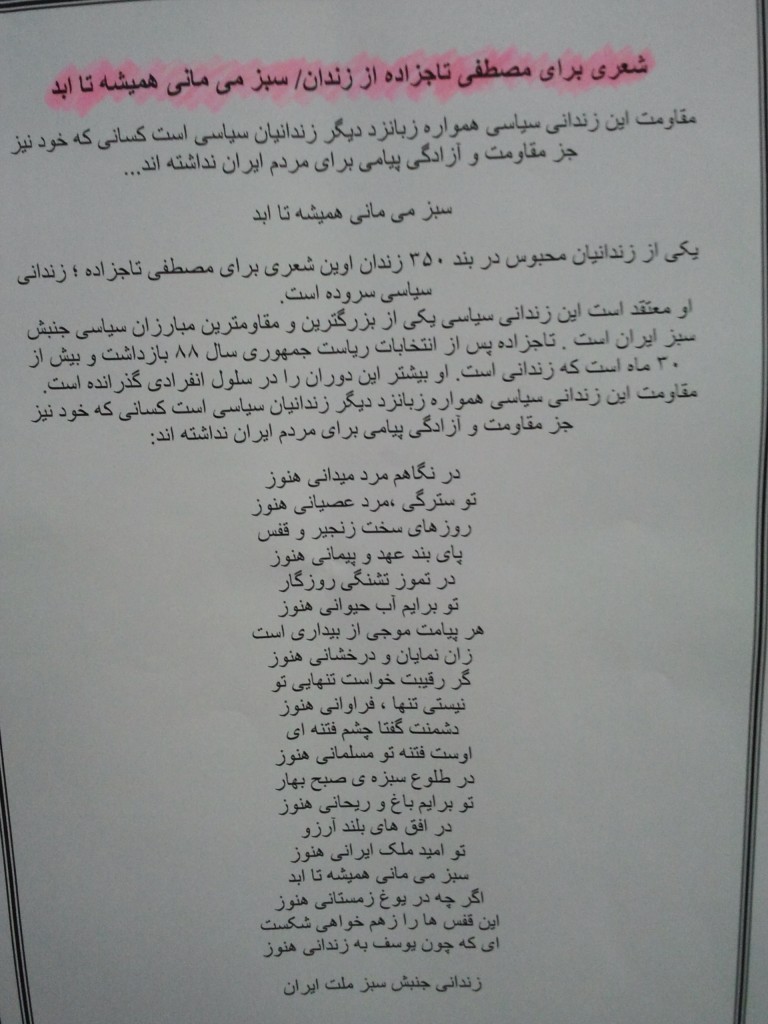 شعری برای مصطفی تاجزاده از زندان/ سبز می مانی همیشه تا ابد
مقاومت این زندانی سیاسی همواره زبانزد دیگر زندانیان سیاسی است کسانی که خود نیز
جز مقاومت و آزادگی پیامی برای مردم ایران نداشته اند...
سبز می مانی همیشه تا ابد
یکی از زندانیان محبوس در بند ۳۵۰ زندان اوین شعری برای مصطفی تاجزاده ؛ زندانی
سیاسی سروده است.
او معتقد است این زندانی سیاسی یکی از بزرگترین و مقاومترین مبارزان سیاسی جنبش
سبز ایران است . تاجزاده پس از انتخابات ریاست جمهوری سال ۸۸ بازداشت و بیش از
۳۰ ماه است که زندانی است. او بیشتر این دوران را در سلول انفرادی گذرانده است.
مقاومت این زندانی سیاسی همواره زبانزد دیگر زندانیان سیاسی است کسانی که خود نیز
جز مقاومت و آزادگی پیامی برای مردم ایران نداشته اند:
در نگاهم مرد میدانی هنوز
تو سترگی ،مرد عصیانی هنوز
روزهای سخت زنجیر و قفس
پای بند عهد و پیمانی هنوز
در تموز تشنگی روزگار
تو برایم آب حیوانی هنوز
هر پیامت موجی از بیداری است
زان نمایان و درخشانی هنوز
گر رقیبت خواست تنهایی تو
نیستی تنها ، فراوانی هنوز
دشمنت گفتا چشم فتنه ای
اوست فتنه تو مسلمانی هنوز
در طلوع سبزه ی صبح بهار
تو برایم باغ و ریحانی هنوز
در افق های بلند آرزو
تو امید ملک ایرانی هنوز
سبز می مانی همیشه تا ابد
اگر چه در یوغ زمستانی هنوز
این قفس ها را زهم خواهی شکست
ای که چون یوسف به زندانی هنوز
زندانی جنبش سبز ملت ایران